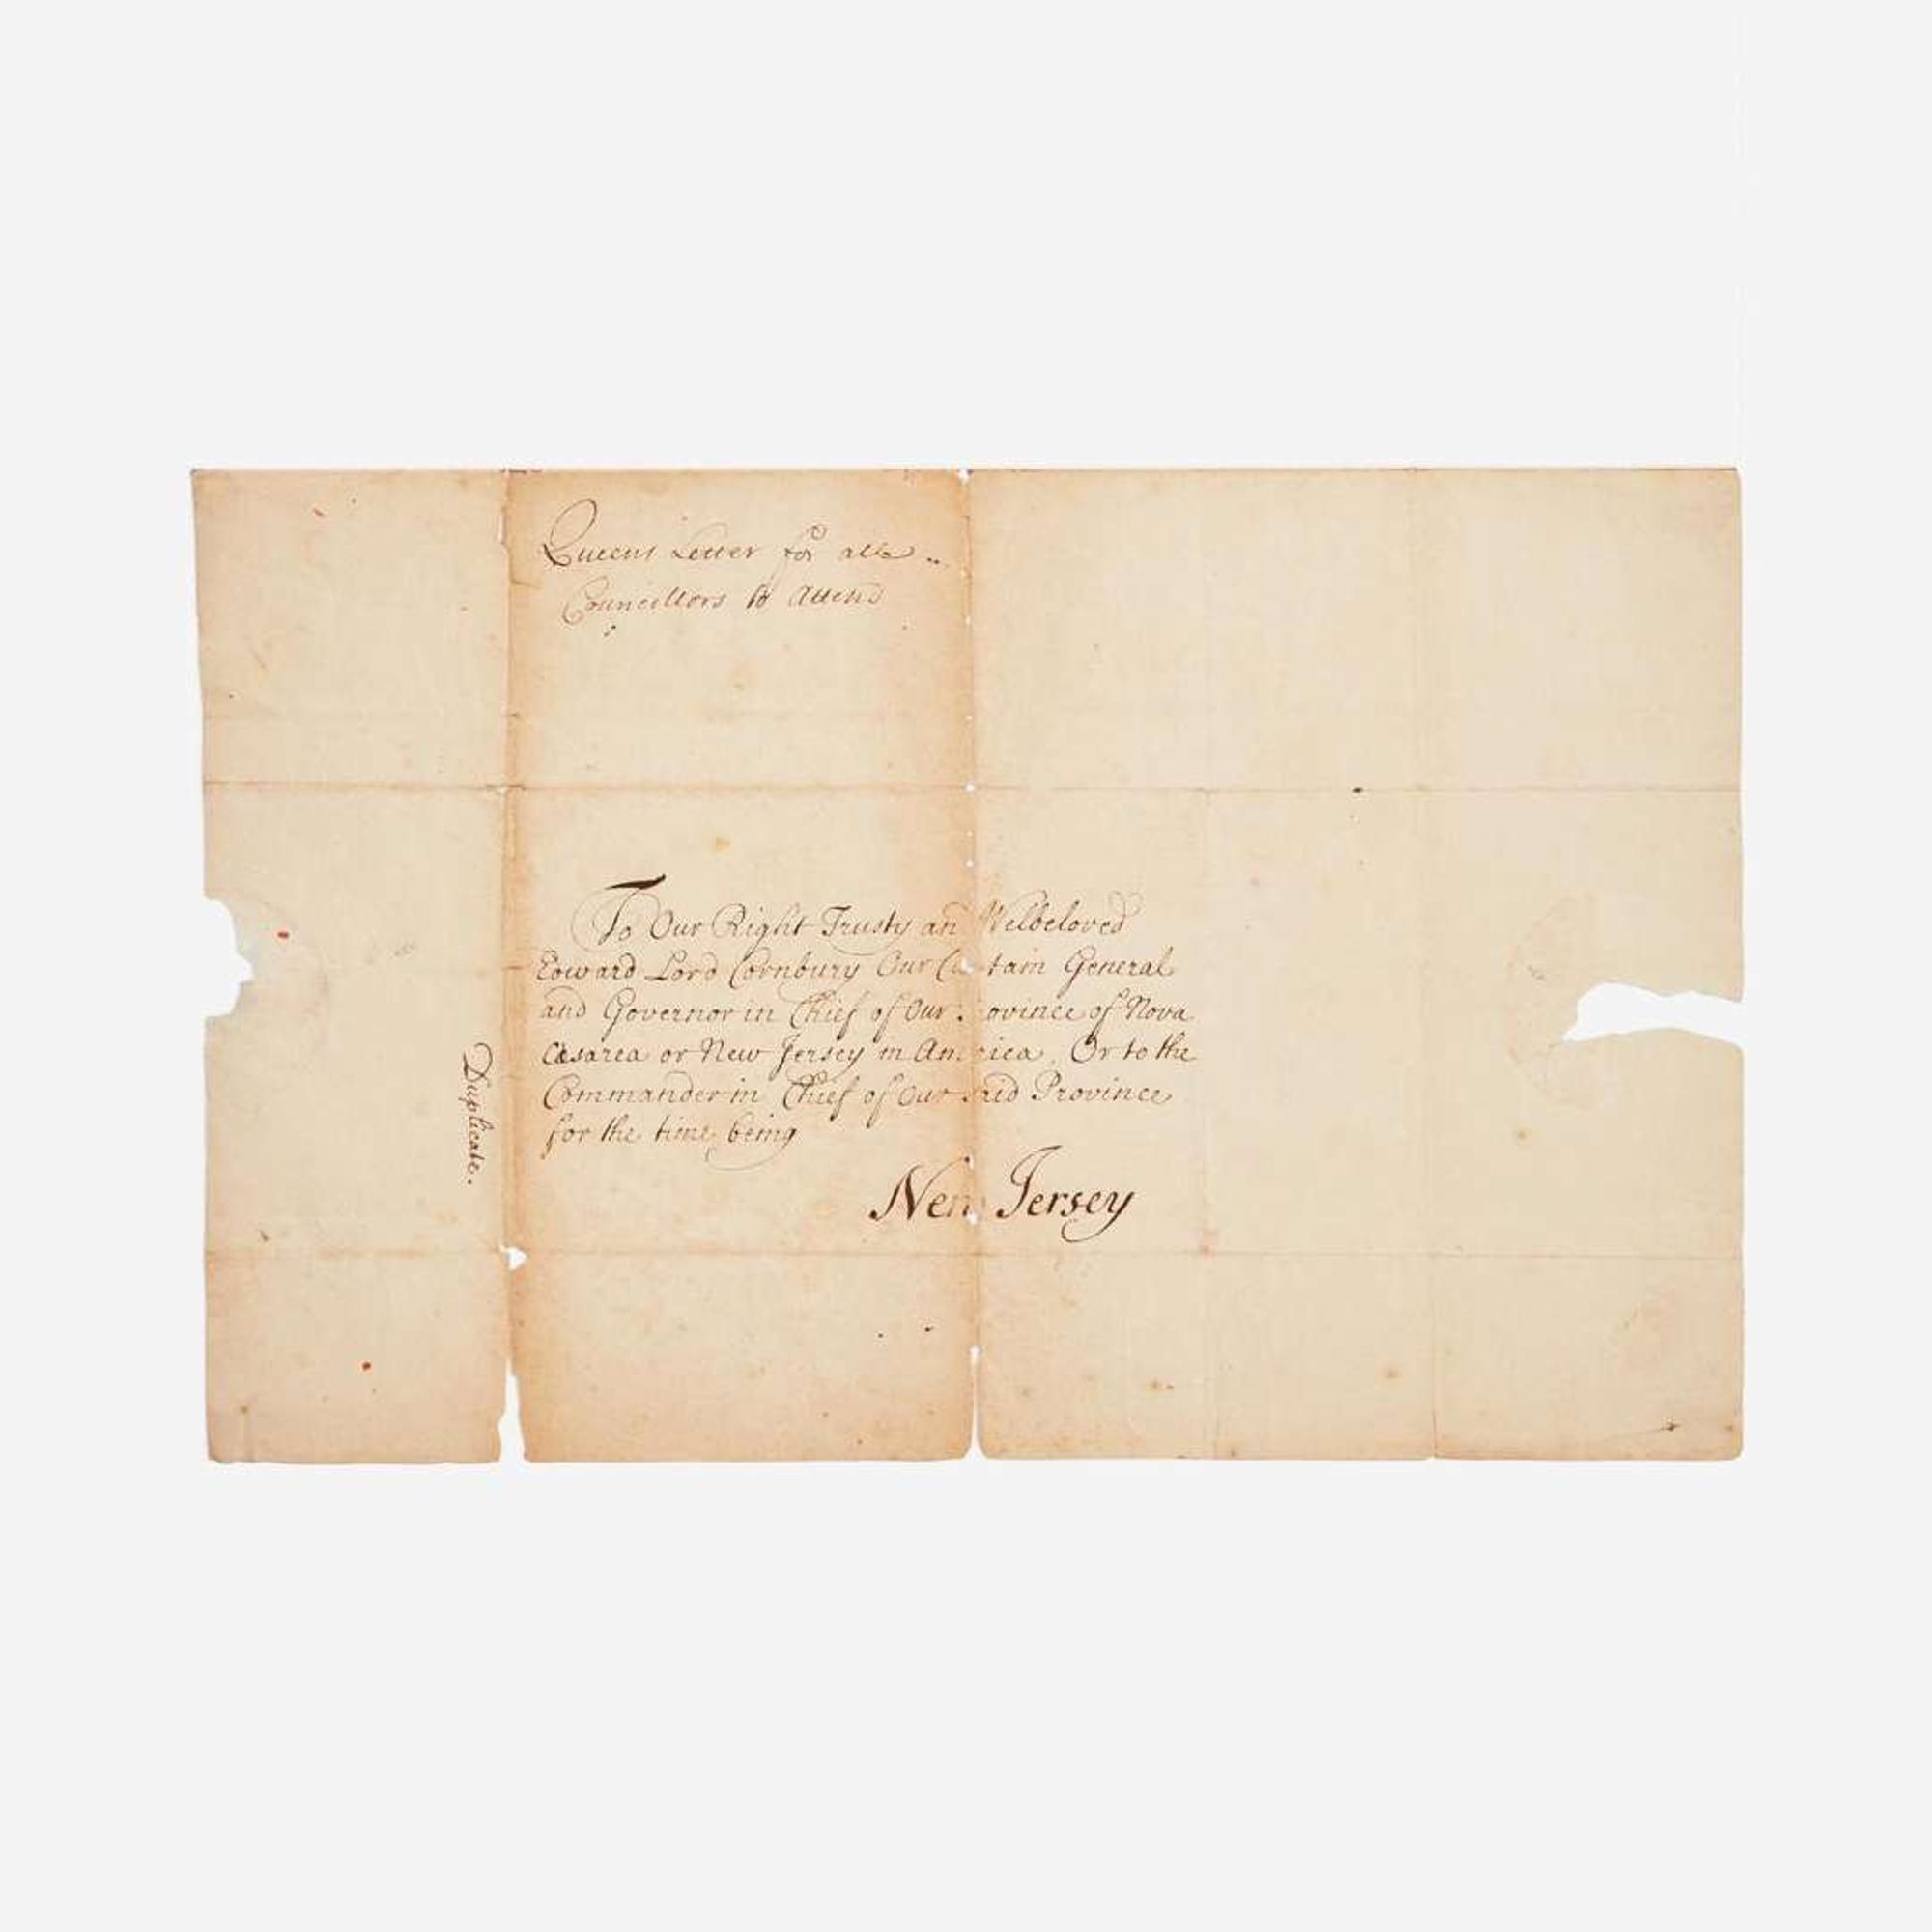 Queens Letter for all
Councillors to Attend
To Our Right Trusty an Welbeloved
Edward Lord Cornbury Our Ca tain General
and Governor in Chief of Our ovince of Nova
Cæsarea or New Jersey in Am rica. Or to the
Commander in Chief of Our said Province
for the time being
New Jersey
Duplicate.